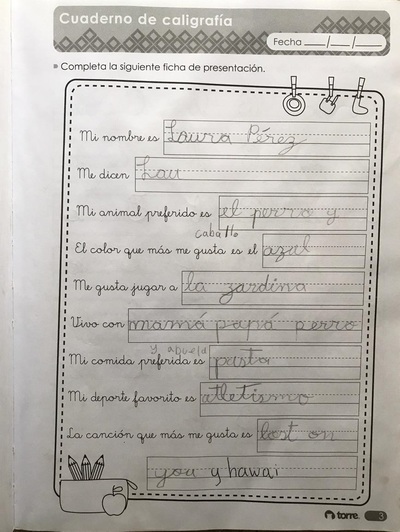 Cuaderno de caligrafía
Fecha ___/___/___
» Completa la siguiente ficha de presentación.
Mi nombre es Laura Pérez
Me dicen Lau
Mi animal preferido es el perro y
caballo
El color que más me gusta es el azul
Me gusta jugar a la zardina
Vivo con mamá papá perro
y abuela
Mi comida preferida es pasta
Mi deporte favorito es atletismo
La canción que más me gusta es lost on
you y hawai
torre. 3